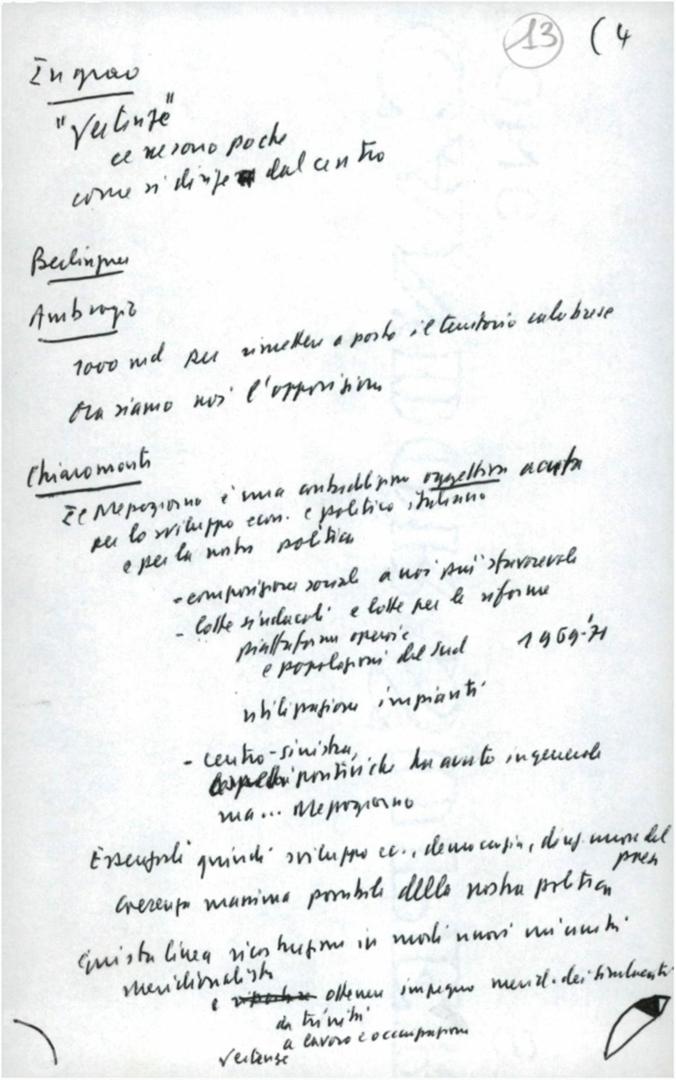 13 (4
Ingrao
"Vertenze"
ce ne sono poche
come si dirige dal centro
Berlinguer
Ambrogio
1000 md per rimettere a posto il territorio calabrese
Ora siamo noi l'opposizione
Chiaromonte
Il Mezzogiorno è una contraddizione oggettiva acuta
per lo sviluppo econ. e politico italiano
e per la nostra politica
- composizione sociale a noi più sfavorevole
- lotte sindacali e lotte per le riforme
piattaforme operaie
e popolazioni del Sud 1969-71
utilizzazione impianti
- centro-sinistra,
positivi che ha avuto in generale
ma... Mezzogiorno
Essenziali quindi sviluppo ec., democrazia, del
paese
Coerenza massima possibile della nostra politica
Questa linea ricostruzione in modi nuovi
meridionalista
e ottenere impegno merid. dei sindacati
da
a lavoro e occupazione
vertenze